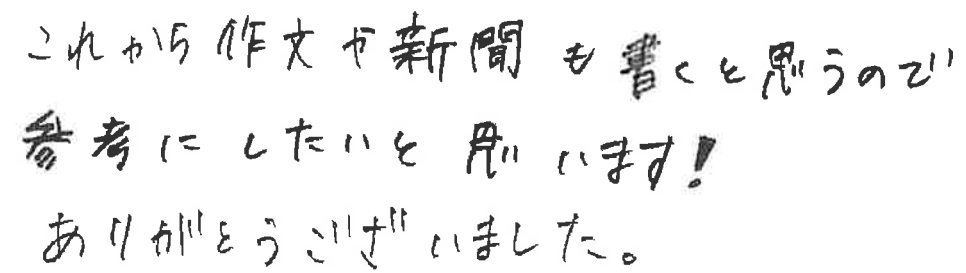 これから作文や新聞も書くと思うので
参考にしたいと思います!
ありがとうございました。